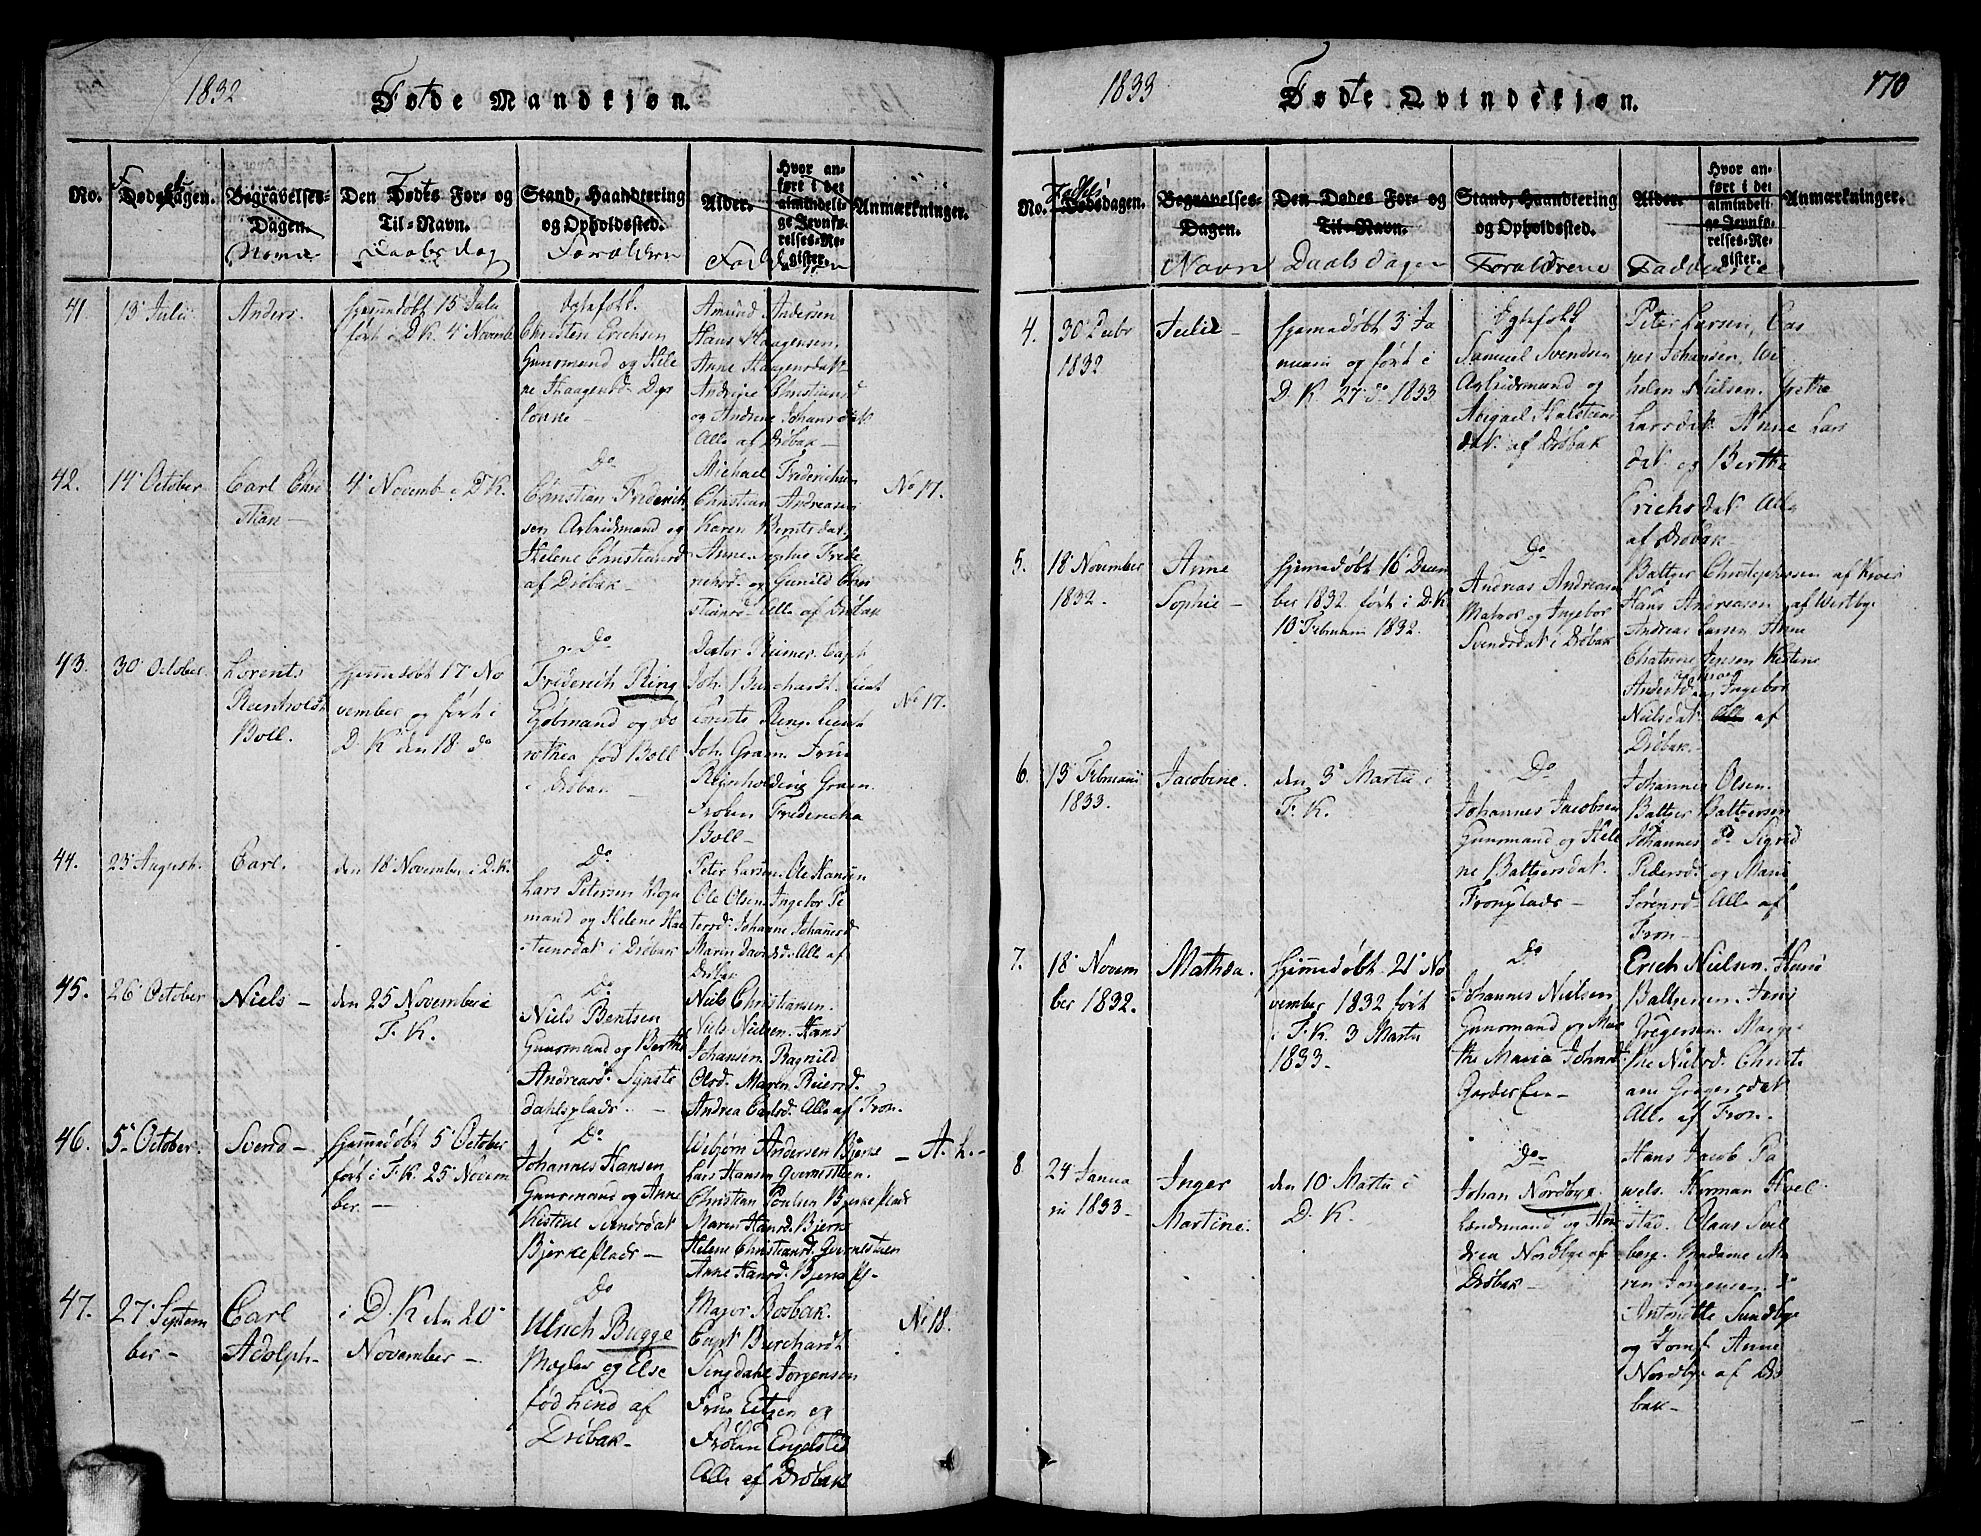 1832
Fødte Mandkjøn.
No.
Fødselsdagen.
Begravelses-Dagen.
Navne
Den Fødtes For- og Til-Navn.
Daabsdag
Stand, Haandtering og Opholdssted.
Forældrene
Alder.
Hvor anført i det almindelige Jevnførelses-Register.
Fadderne
Anmærkninger.
41.
13 Juli
Anders.
Hjemmedøbt 15 Juli
ført i D.K. 4 Novembr
Egtefolk.
Christen Erichsen
Huusmand og Hele
ne Haagensd.
Amund Andersen
Hans Haagensen,
Anne Haagensdatt
Andrine Christiansd
og Andrine Johansdatt
Alle af Drøbak
42.
14 October
Carl Chri
stian
4 Novemb i D.K.
Do
Christian Frederich
sen Arbeidsmand og
Helene Christiansd
af Drøbak
Michael Frederichsen
Christian Andreasen
Karen Berntsdat,
Anne Sophie Frede
richsd. og Gunild Chri
stiansd. Alle af Drøbak
No 17.
43.
30 October
Lorents
Reinholdt
Boll.
Hjemmedøbt 17 No
vember og ført i
D.K. den 18 do
Do
Frederich Ring
Kjøbmand og Do
rothea fød Boll
i Drøbak
Doctor Reimers. Capt
Joh. Burchardt. Lieut
Lorents Ring. Lieut
Joh. Gram. Frue
Reinholdine Gram.
Frøken Fredericha
Boll
No 17.
44.
23 August.
Carl.
den 18 November i D.K.
Do
Lars Petersen Vogn
mand og Helene Hal
steensdat i Drøbak
Peter Larsen. Ole Hansen
Ole Olsen Ingebor Pe
tersd. Johanne Johannesd
Maren Davidsd. Alle af
Drøbak
45.
26 October
Niels
den 25 November i
F.K.
Do
Niels Bentsen
Huusmand og Berthe
Andreasd.
dahlsplads
Niels Christiansen.
Niels Nielsen. Hans
Johansen. Ragnild
Olsd. Maren Reiersd.
Andrea Carlsd. Alle af Fron.
46.
5 October.
Svend
Hjemmedøbt 5 October
ført i F.K. 25 Novem
ber.
Do
Johannes Hansen
Huusmand og Anne
Kistine Svendsdat
Bjerkeplads
Andersen Bjerke
Lars Hansen
Christian Poulsen Bjerkeplads
Maren Hansd. Bjerke
Helene Christiansd.
Anne Hansd. Bjerkepl.
A.L.
47.
27 Septem
ber
Carl
Adolph
i D.K. den 20
November
Do
Ulrich Bugge
Mægler og Else
fød Lind af
Drøbak
Major Rosbak.
Capt Burchardt
Singdahl Jørgensen
Frue Eitzen og
Frøken Engelsted
Alle af Drøbak
No 18.
1833
Fødte Qvindekjøn.
170
No.
Fødselsdagen.
Begravelses-Dagen.
Navn
Den Dødes For- og Til-Navn.
Daabsdagen
Stand, Haandtering og Opholdssted.
Forældrene
Alder.
Hvor anført i det almindelige Jevnførelses-Register.
Fadderne
Anmærkninger.
4.
30 Decbr
1832
Julie
Hjemmedøbt 3 Ja
nuarii og ført i
D.K. 27 do 1833
Egtefolk
Samuel Svendsen
Arbeidsmand og
Abigael Halsteens
dat. af Drøbak
Peter Larsen, Cas
Johansen,
Nielsen. Grethe
Larsdat. Anne Lars
dat. og Berthe
Erichsdat. Alle
af Drøbak
5.
18 November
1832.
Anne
Sophie
Hjemmedøbt 16 Decem
ber 1832. ført i D.K
10 Februarii 1832.
Do
Andreas Andreasen
Matros og Ingebor
Svendsdat i Drøbak
Baltzer Christophersen af
Hans Andreasen af Westbye
Andreas Larsen Anne
Jensen Kistine
Andersd. Ingebor
Nielsdat. Alle af
Drøbak
6.
13 Februarii
1833.
Jacobine.
den 3 Martii i
F.K.
Do
Johannes Jacobsen
Huusmand og Hele
ne Baltzersdat.
Fronplads
Johannes Olsen.
Baltzer Baltzersen
Johannes do Sigrid
Pedersd. og Marie
Sørensd. Alle af
Fron
7.
18 Novem
ber 1832.
Mathea.
Hjemmedøbt 21 No
vember 1832 ført
i F.K. 3 Martii
1833.
Do
Johannes Nielsen
Huusmand og Mar
the Maria Johnsd.
Erich Nielsen. Hans
Baltzersen. Jens
Gregersen. Marg
the Nielsd. Christi
ane Gregersdat
Alle af Fron.
8
24 Janua
rii 1833
Inger
Martine.
den 10 Martii i
D.K.
Do
Johan Nordbye
og
drea Nordbye af
Drøbak
Hans Jacob Pa
wels. Herman Hvel
stad. Claus Svel
berg. Madame Ma
ren Jørgensen. do
Antonette Sundbye
og Jomf. Anne
Nordbye af Drø
bak